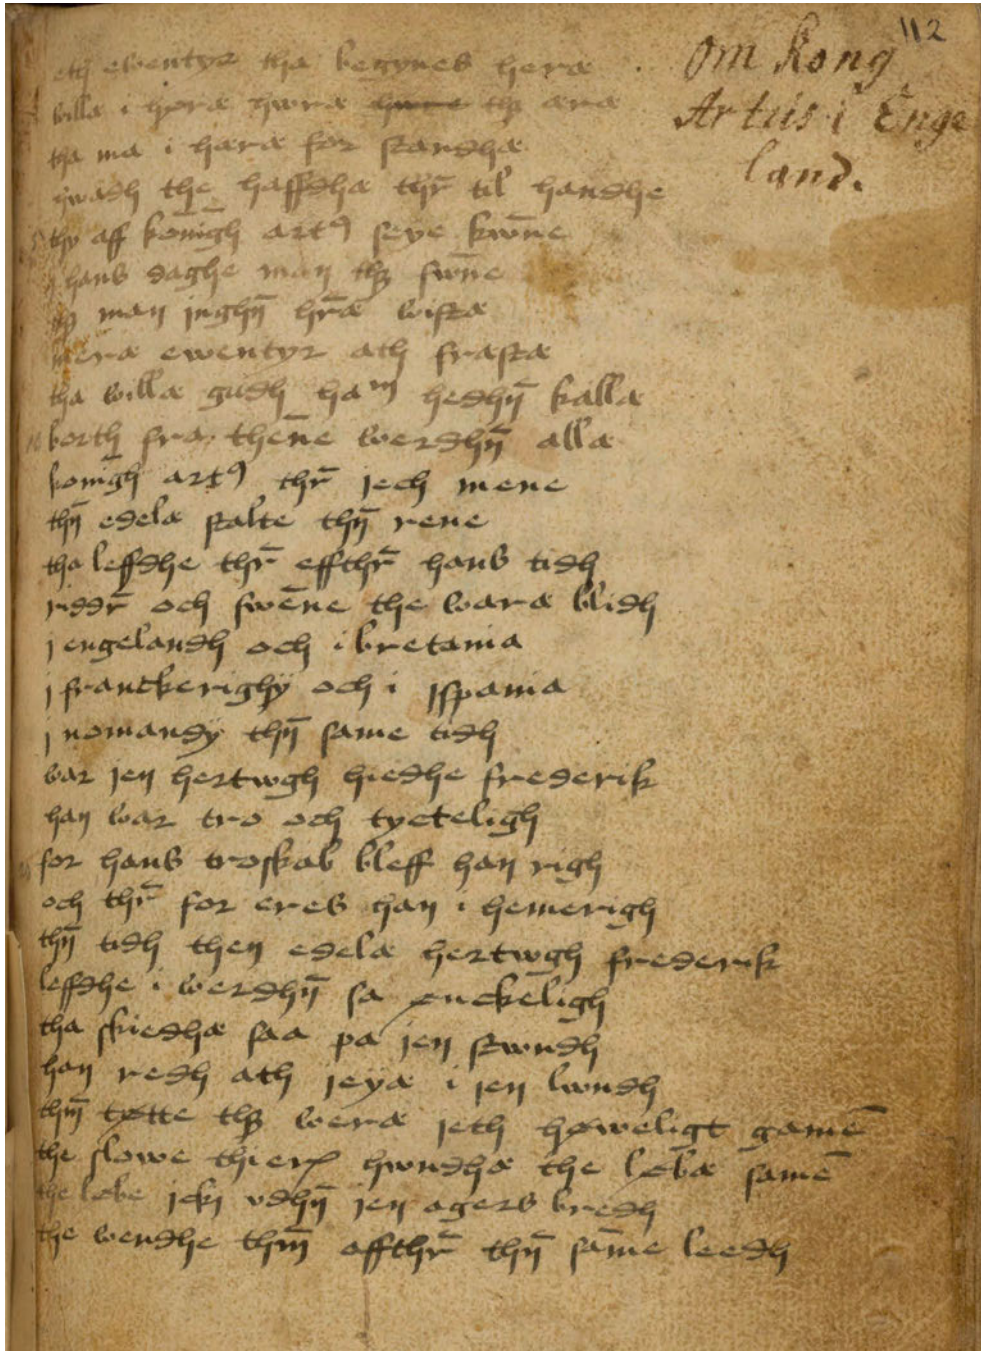 112
Om Kong
Artus i Enge
land.
eth ewentyr tha begynes heræ
willæ i høræ hwræ thꝫ æræ
tha ma i hæræ for standhæ
hwadh the haffdhæ thr̄ til handhe
thy aff konīgh artꝰ seye kwn̄e
i hans daghe man thꝫ fwn̄e
man inghn̄ hr̄æ wistæ
meræ ewentyr ath fræstæ
tha willæ gudh haᵐ hedhn̄ kallæ
borth fra then̄e werdhn̄ allæ
konīgh artꝰ thr̄ jech mene
thn̄ edelæ stalte thn̄ rene
tha leffdhe thr̄ effthr̄ hans tidh
riddr̄ och swēne the waræ blidh
j engelandh och i bretania
j franckerighij och i jspania
j nomandy thn̄ same tidh
war jen hertwgh hiedhe frederik
han war tro och tycteligh
for hans troskab bleff han righ
och thr̄ for eres han i hemerigh
thn̄ tidh then edelæ hertwgh frederik
leffdhe i werdhn̄ sa ønckeligh
tha skiedhæ saa pa jen stwndh
han redh ath jeyæ i jen lwndh
thm̄ tøtte thꝫ weræ jeth høweligt gamē
the slowe thieræ hwndhæ the løbæ samē
the løbe jcki vdhn̄ jen agers bredh
the wendhe thm̄ offthr̄ thn̄ sāme leedh